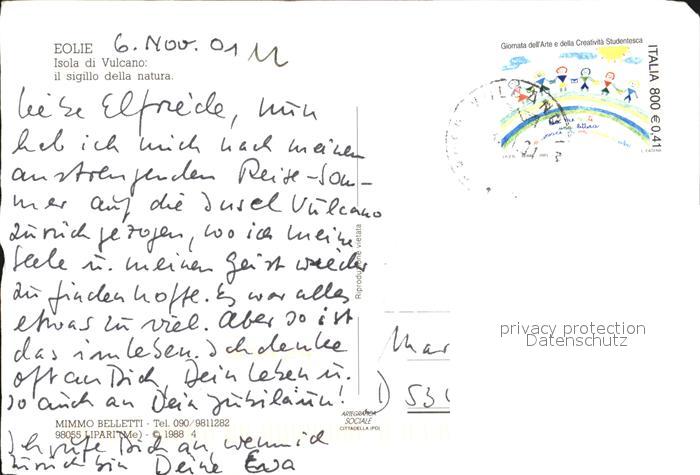 EOLIE 6. Nov. 01
Isola di Vulcano:
il sigillo della natura.
Liebe Elfriede, nun
hab ich mich nach meinen
anstrengenden Reise-Som-
mer auf die Insel Vulcano
zurückgezogen, wo ich meine
Seele u. meinen Geist wieder
zu finden hoffe. Es war alles
etwas zu viel. Aber so ist
das im Leben. Ich denke
oft an Dich, Dein Leben u.
so auch an Dein Jubiläum!
MIMMO BELLETTI - Tel. 090/9811282
98055 LIPARI (Me) - © 1988 4
Ich rufe Dich an, wenn ich
zurück bin Deine Ewa
Riproduzione vietata
ARTEGRAFICA
SOCIALE
CITTADELLA (PD)
Giornata dell'Arte e della Creatività Studentesca
ITALIA 800 €0,41
Mar
D 530
privacy protection
Datenschutz